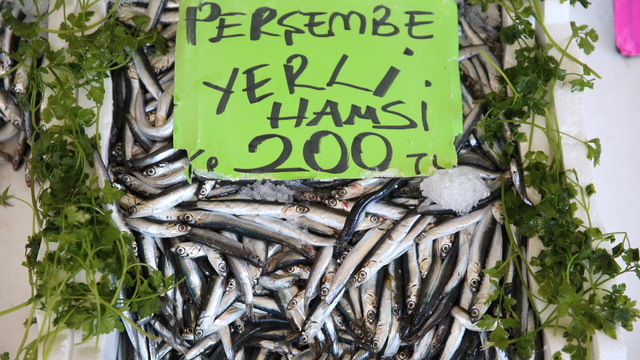 PERŞEMBE
YERLİ
HAMSİ
Kg 200 TL